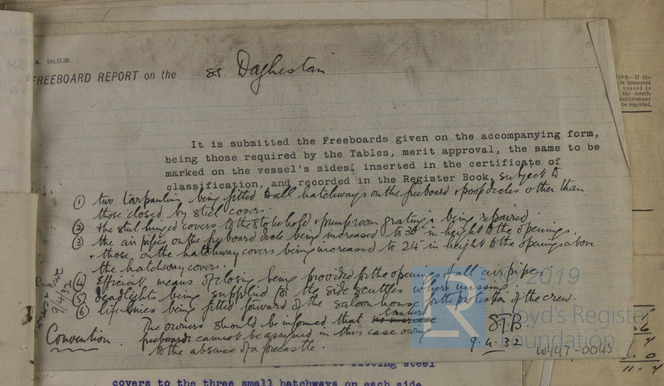 A. 1m.11.29.
FREEBOARD REPORT on the ss Daghestan
It is submitted the Freeboards given on the accompanying form,
being those required by the Tables, merit approval, the same to be
marked on the vessel's sides, inserted in the certificate of
classification, and recorded in the Register Book, subject to
① two tarpaulins being fitted to all hatchways on the freeboard & poop decks other than
those closed by steel covers.
② The steel hinged covers to the stokehold & pumproom gratings being repaired.
③ the air pipes on the freeboard deck being increased to 36" in height to the openings
& those on the hatchway covers being increased to 24" in height to the openings above
the hatchway covers.
④ Efficient means of closing being provided for the openings of all air pipes.
⑤ deadlights being supplied to the side scuttles where missing.
⑥ life-lines being fitted forward of the saloon house for the protection of the crew.
Convention. The owners should be informed that
freeboards cannot be assigned in this case owing
to the absence of a forecastle.
9/4/32
STB
9.4.32
W447-0045
© 2019
Lloyd's Register
Foundation
NOTE.—If the
vessel is
the details
be reported.
11.4
covers to the three small hatchways on each side
steel